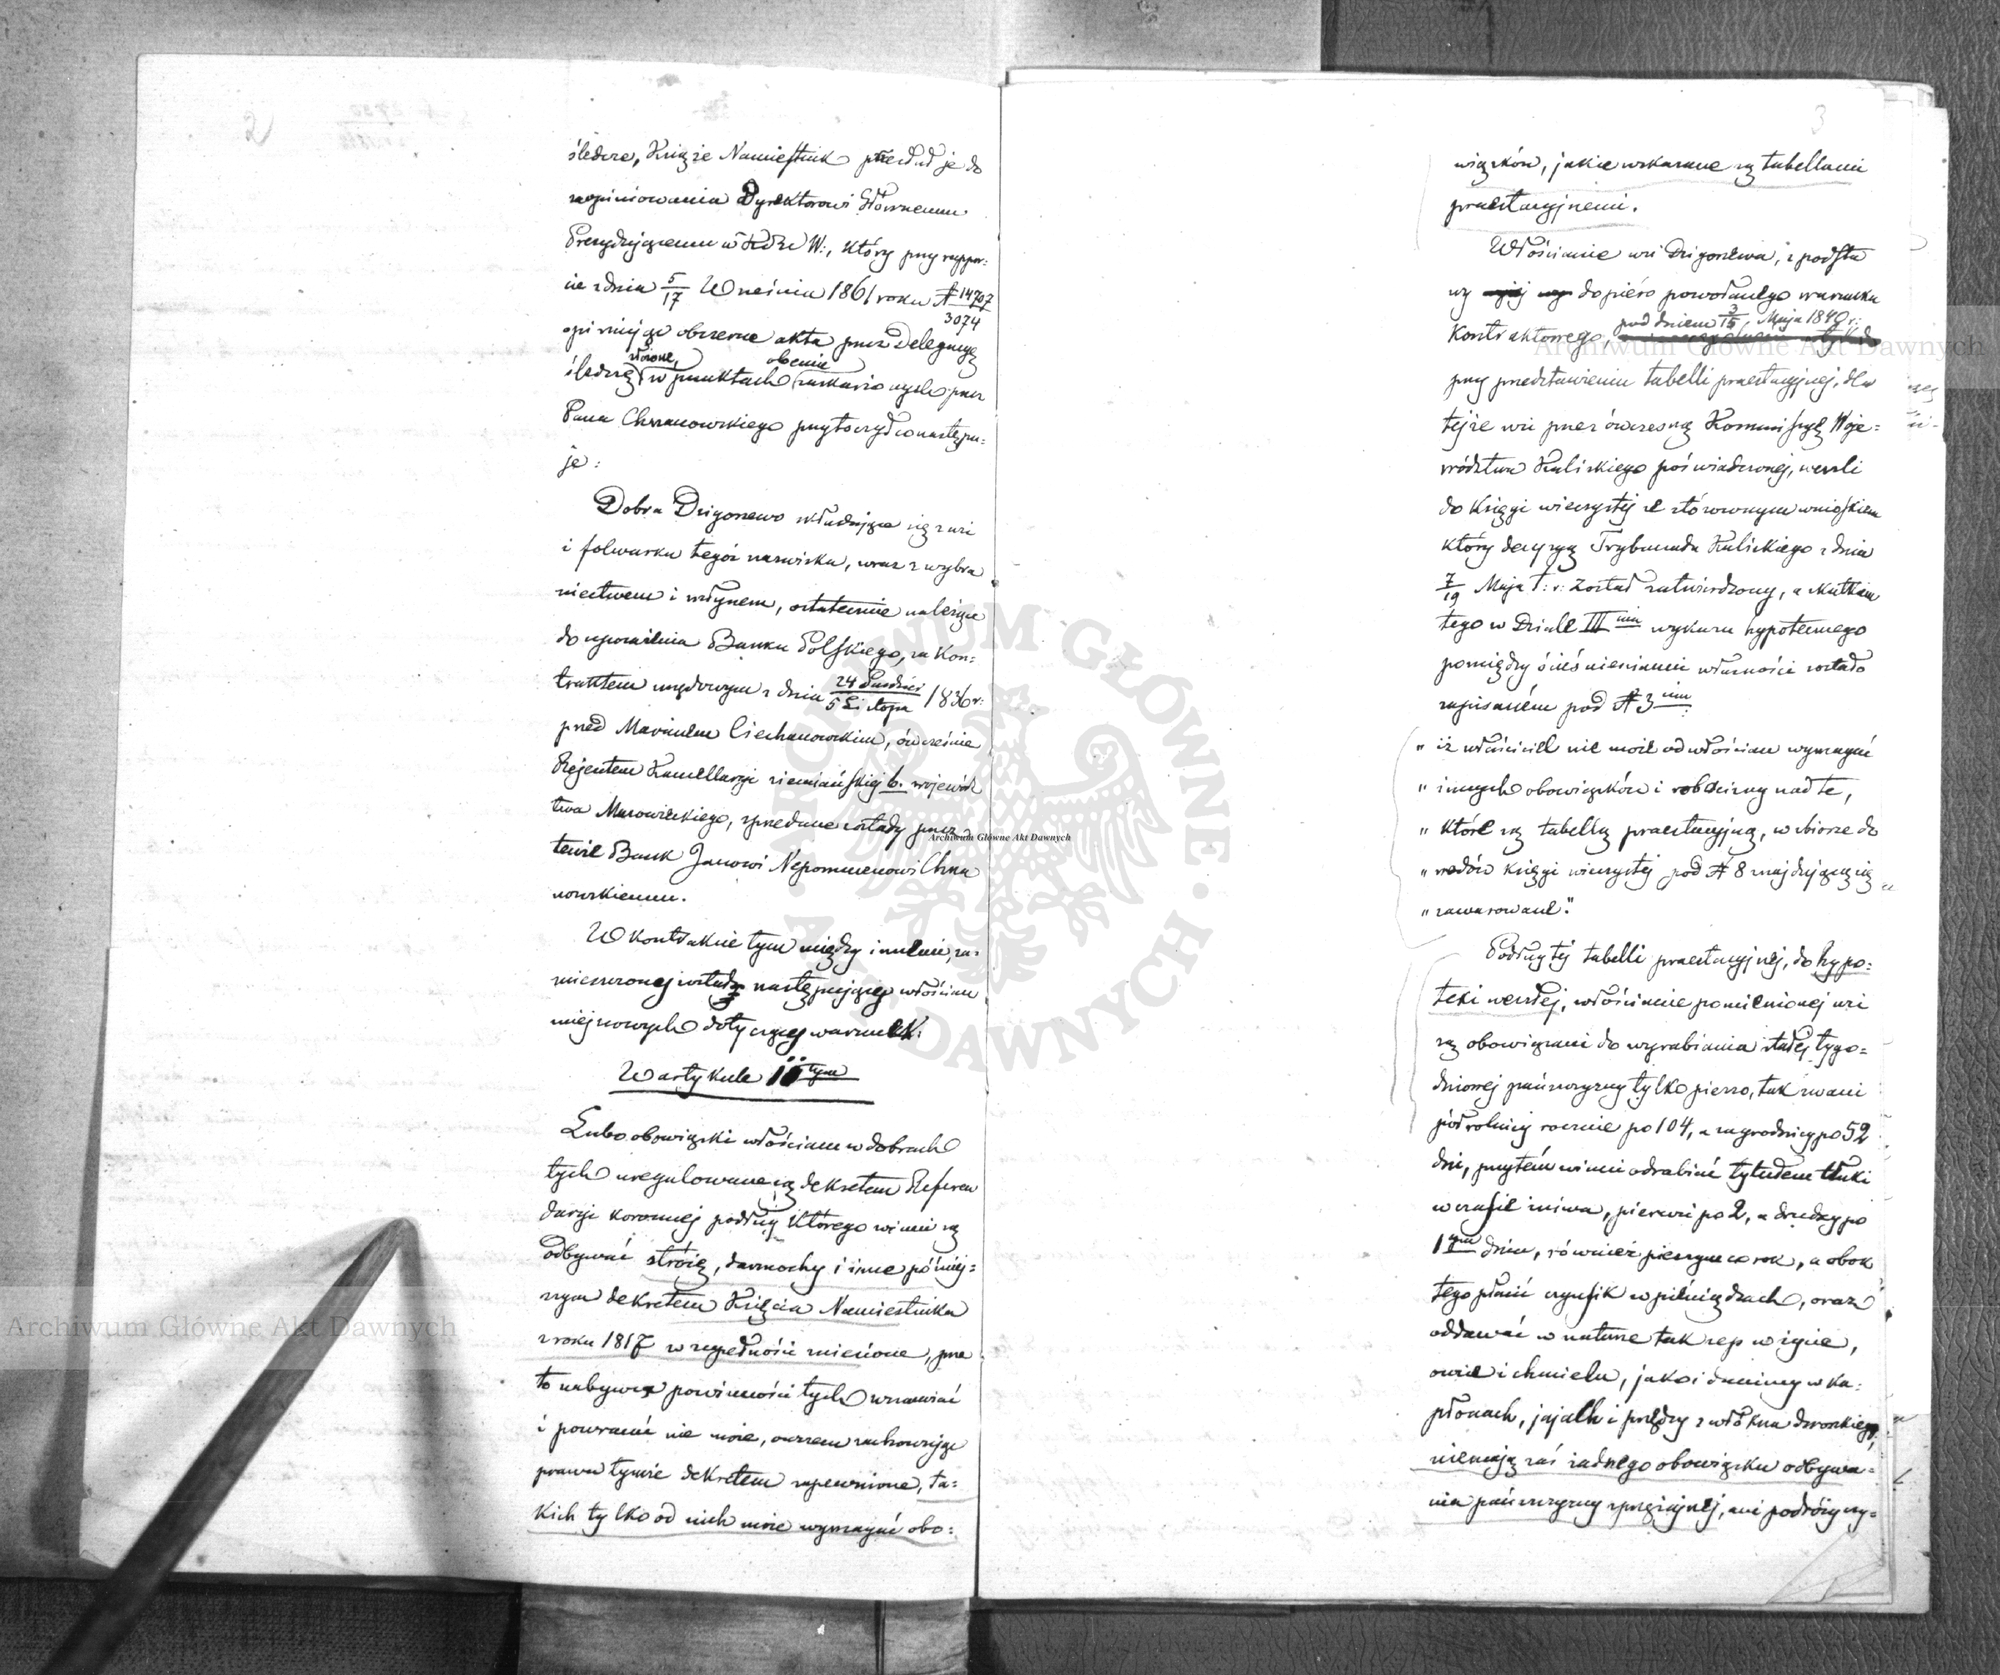 2
śledcze, Książe Namiestnik przesłał je do
zaopiniowania Dyrektorowi Głównemu
Prezydującemu w K. R. S. W:, który przy rappor:
cie z dnia 5/17 Września 1861 roku № 14707/3074
opierając obszerne akta przez Delegacyą
śledczą złożone, w punktach obecnie zaskarżonych przez
Pana Chrzanowskiego przytoczył co następu:
je:
Dobra Dzigorzewo składające się z wsi
i folwarku tegoż nazwiska, wraz z wybra
niectwem i młynem, ostatecznie należące
do uposażenia Banku Polskiego, za Kon:
traktem urzędowym z dnia 24 Paździer/5 Listopa 1836 r:
przed Maxianem Ciechanowskim, ówcześnie
Rejentem Kancellaryi ziemiańskiej b. wojewódz
twa Mazowieckiego, sprzedane zostały przez
tenże Bank Janowi Nepomucenowi Chrza
nowskiemu.
W kontrakcie tym między innemi, za:
mieszczonej został następujący włościan
miejscowych dotyczący warunek.
W artykule 11tym
Lubo obowiązki włościan w dobrach
tych uregulowane są dekretem Referen
daryi koronnej podług którego winni są
odbywać stróżę, darmochy i inne później:
szym dekretem Księcia Namiestnika
z roku 1817 w zupełności zniesione, prze
to nabywca powinności tych wznawiać
i powracać nie może, owszem zachowując
prawa tymże dekretem zapewnione, ta:
kich tylko od nich może wymagać obo:
3
wiązków, jakie wskazane są tabellami
praestacyjnemi.
Włościanie wsi Dzigorzewa, z podsta
wy dopiero powołanego warunku
Kontraktowego, pod dniem 3/15 Maja 1840 r:
przy przedstawieniu tabelli praestacyjnej, dla
tejże wsi przez ówczesną Kommissyę Woje:
wództwa Kaliskiego poświadczonej, weszli
do Księgi wieczystej ze stósownym wnioskiem
który decyzyą Trybunału Kaliskiego z dnia
7/19 Maja t: r: został zatwierdzony, a skutkiem
tego w Dziale III cim wykazu hypotecznego
pomiędzy ścieśnieniami własności zostało
zapisaném pod № 3 cim:
" iż właściciel nie może od włościan wymagać
" innych obowiązków i robocizny nad te,
" które są tabellą praestacyjną, w zbiorze do
" wodów księgi wieczystej pod № 8 znajdującą się
" zawarowane".
Podług tej tabelli praestacyjnej, do hypo:
teki weszłej, włościanie pomienionej wsi
są obowiązani do wyrabiania stałej tygo:
dniowej pańszczyzny tylko pieszo, tak zwani
półrolnicy rocznie po 104, a zagrodnicy po 52
dni, przytém winni odrabiać tytułem tłuki
w czasie żniwa, pierwsi po 2, a drudzy po
1 ym dniu, również pieszym co rok, a obok
tego płacić czynsik w pieniądzach, oraz
oddawać w naturze tak sep w życie,
owsie i chmielu, jako i daniny w ka:
płonach, jajach i przędzy z włókna dworskiego,
niemają zaś żadnego obowiązku odbywa:
nia pańszczyzny sprzężajnej, ani podróży czy:
Archiwum Główne Akt Dawnych
Archiwum Główne Akt Dawnych
Archiwum Główne Akt Dawnych
ARCHIWUM GŁÓWNE · AKT DAWNYCH ·